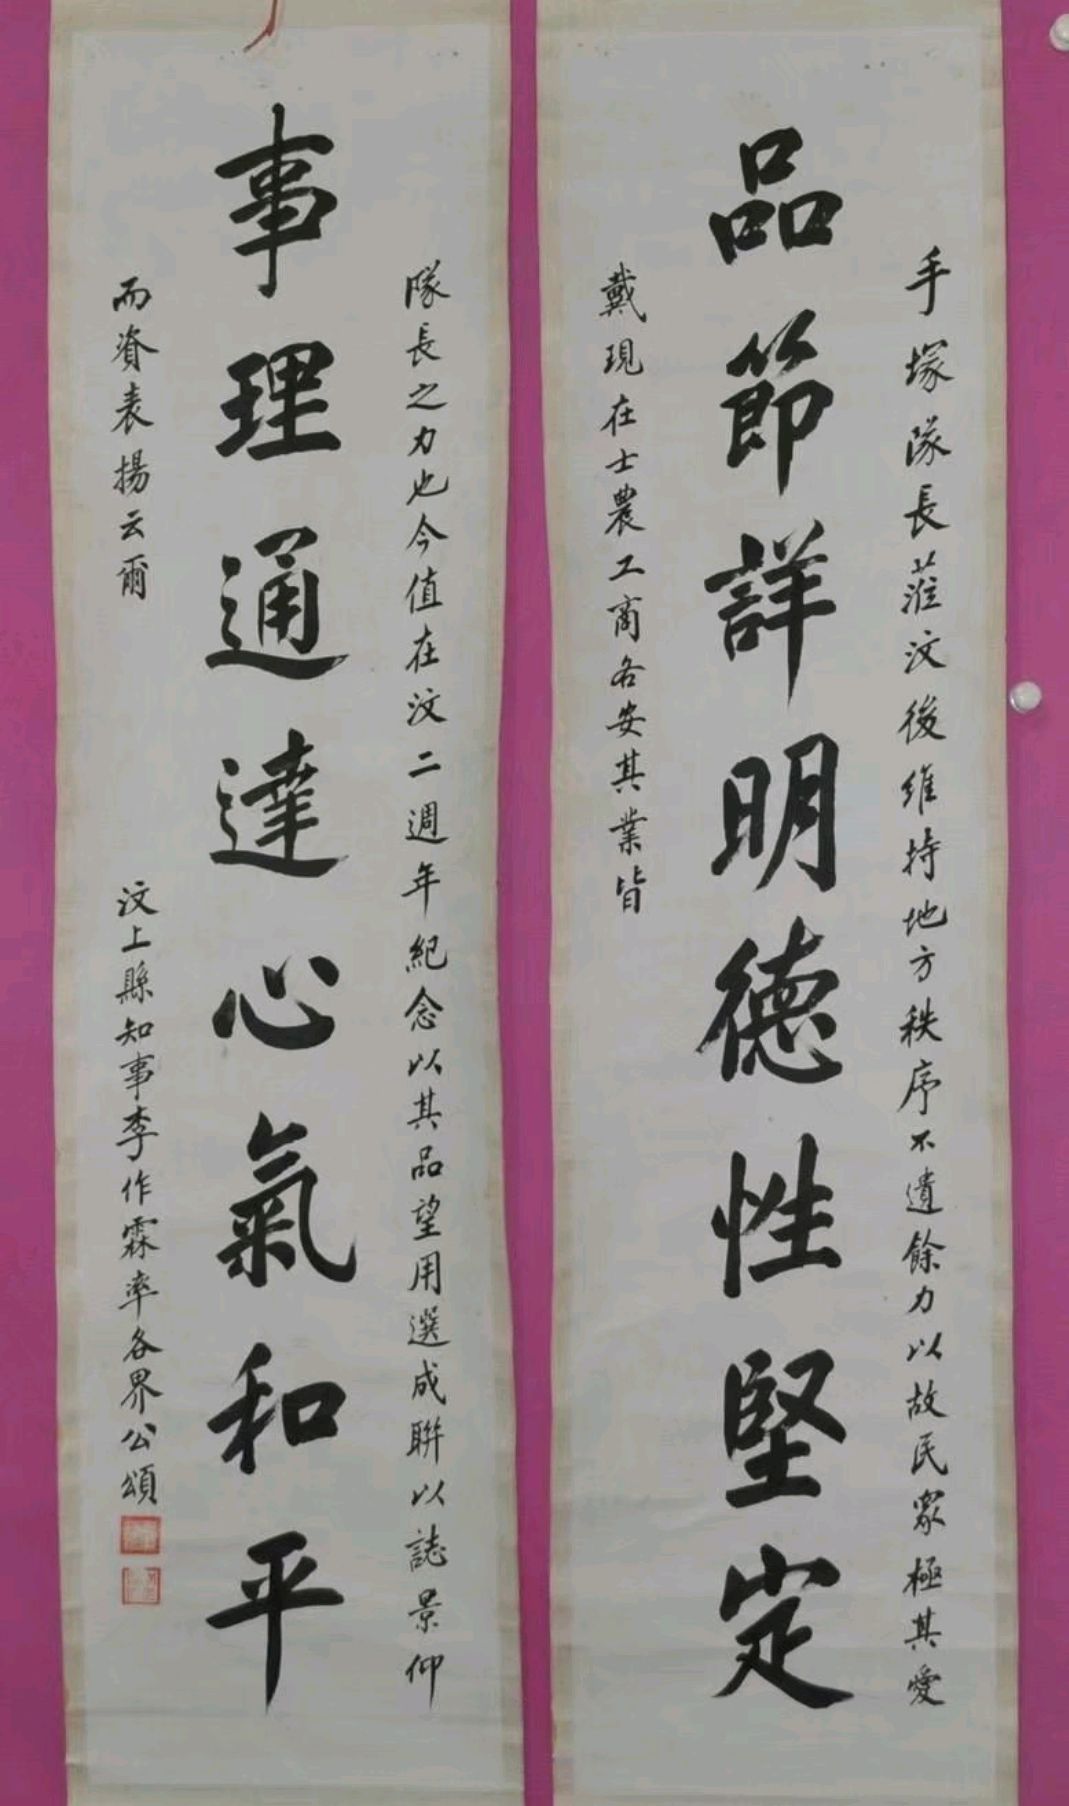 手塚隊長蒞汶後維持地方秩序不遺餘力以故民眾極其愛
品節詳明德性堅定
戴現在士農工商各安其業皆
隊長之力也今值在汶二週年紀念以其品望用選成聯以誌景仰
事理通達心氣和平
而資表揚云爾
汶上縣知事李作霖率各界公頌